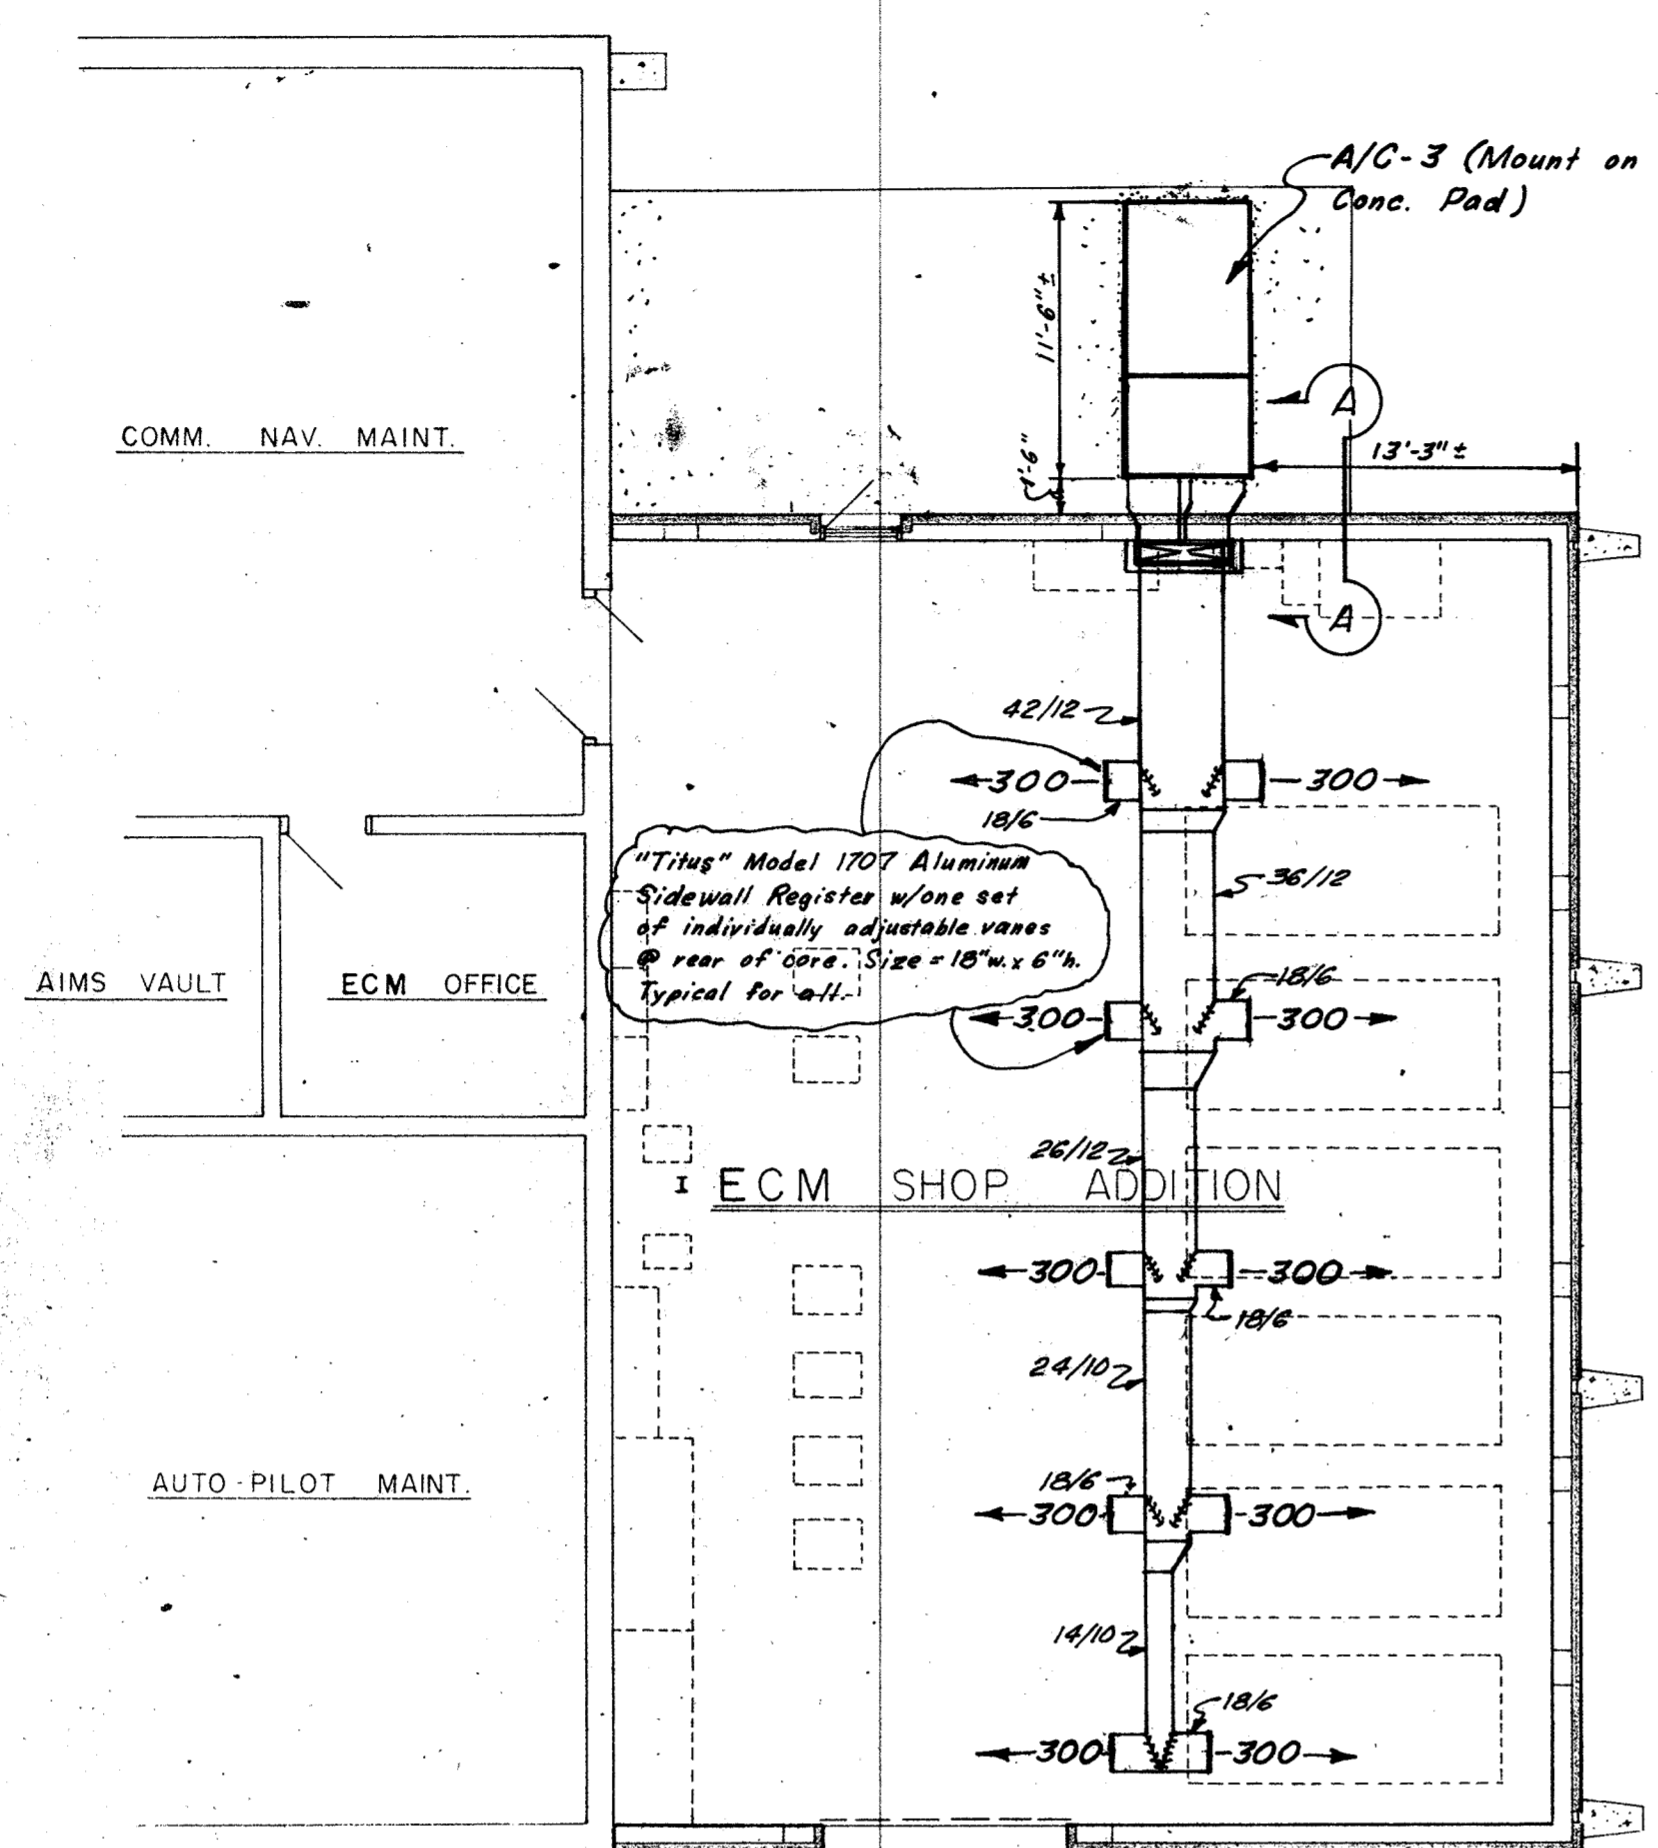 A/C-3 (Mount on
Conc. Pad)
11'-6" ±
A
COMM. NAV. MAINT.
13'-3" ±
1'-6"
A
42/12
300
300
18/6
"Titus" Model 1707 Aluminum
Sidewall Register w/one set
of individually adjustable vanes
@ rear of core. Size = 18"w. x 6"h.
Typical for all.
36/12
AIMS VAULT
ECM OFFICE
18/6
300
300
26/12
I ECM SHOP ADDITION
300
300
18/6
24/10
AUTO-PILOT MAINT.
18/6
300
300
14/10
18/6
300
300